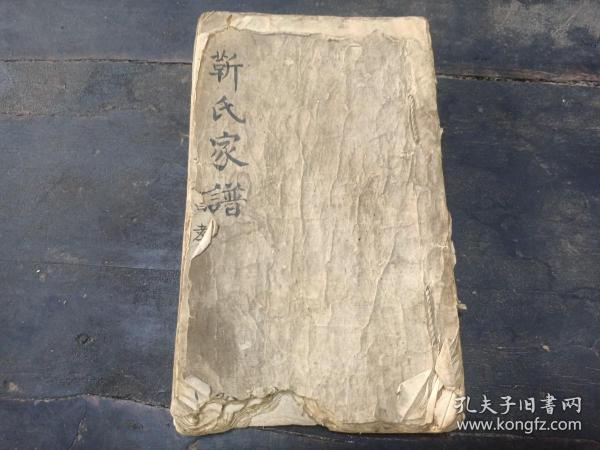 靳氏家譜
孔夫子旧書网
www.kongfz.com